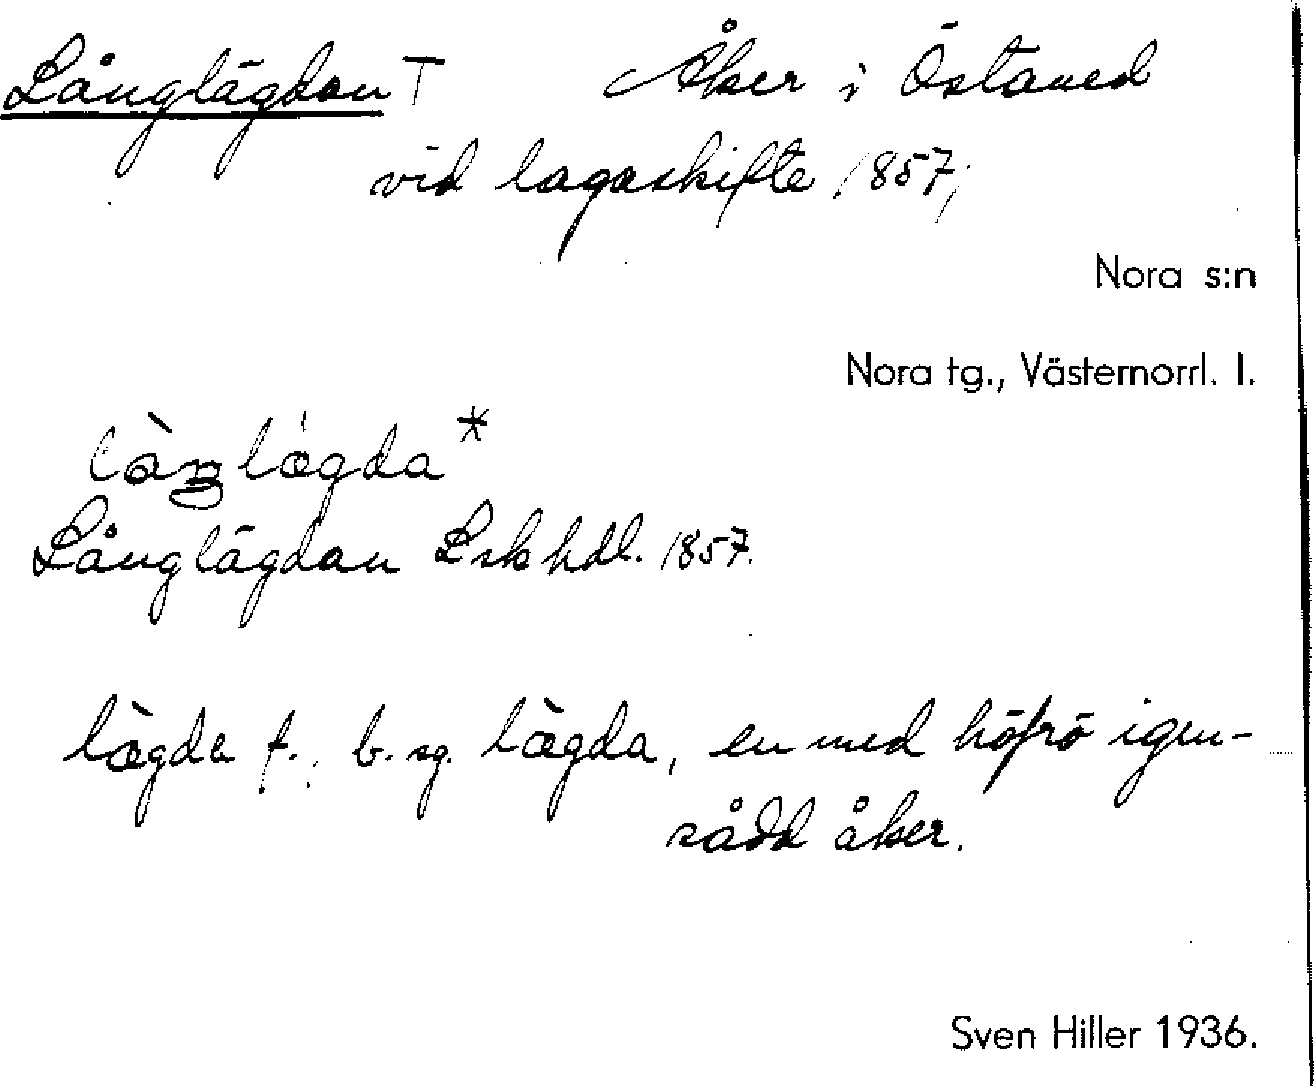 Långlägdan T Åker i Östaned
vid lagaskifte 1857,
Nora s:n
Nora tg., Västernorrl. l.
Långlägdan Lskhdl. 1857.
lægda f., b. sg. lægda, en med höfrö igen-
sådd åker.
Sven Hiller 1936.